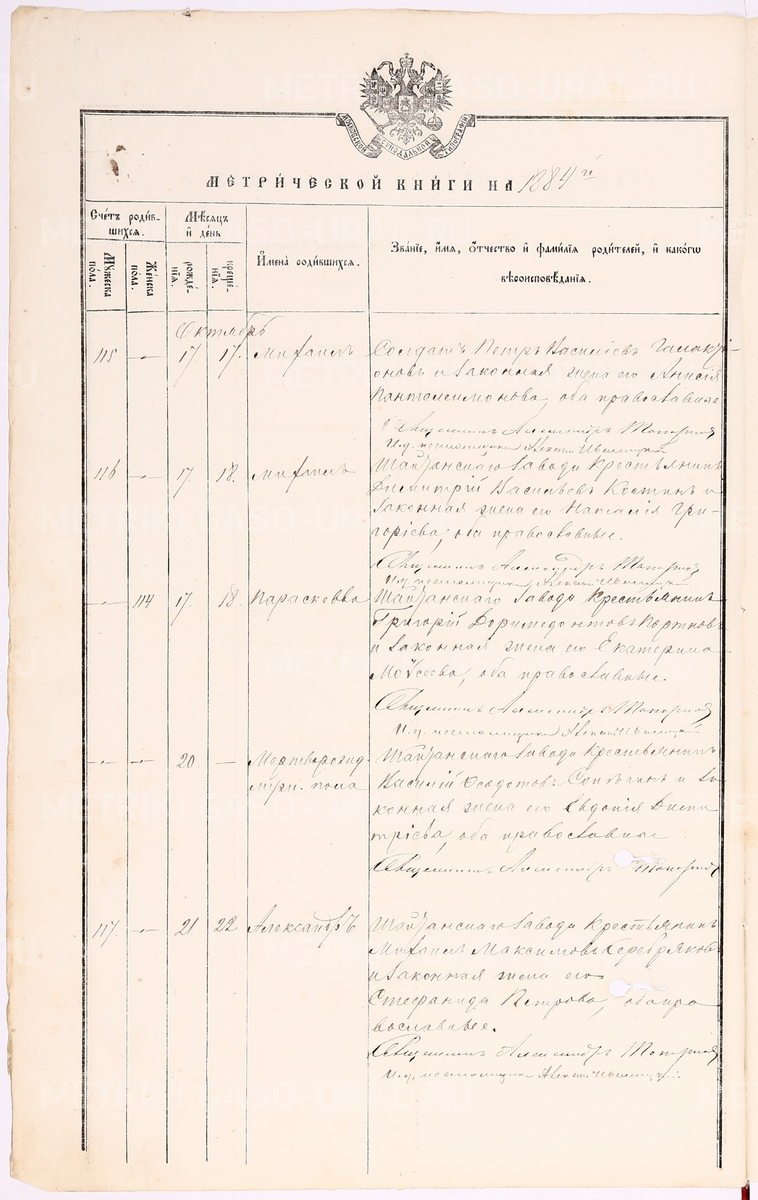 МОСКОВСКОЙ СѴНОДАЛЬНОЙ ТИПОГРАФІИ
МЕТРИ́ЧЕСКОЙ КНИ́ГИ НА 1884 й
Сче́тъ роди́вшихся.
Мѣ́сяцъ и҆ де́нь
И҆мена̀ роди́вшихся.
Зва́нїе, и҆́мя, ѻ҆́тчество и҆ фами́лїѧ роди́телей, и҆ како́гѡ вѣроисповѣ́данїѧ.
Мꙋ́жеска по́ла.
Же́нска по́ла.
рожде́нїѧ.
креще́нїѧ.
Октябрь
115 — 17 17. Михаилъ
Солдатъ Петръ Василіевъ Галакті-
оновъ и законная жена его Анисія
Панталеимонова, оба православные
Священникъ Александръ Топорковъ
116 — 17 18. Михаилъ
Шайтанскаго Завода крестьянинъ
Димитрій Васильевъ Костинъ и
законная жена его Наталія Гри-
горіева, оба православные.
Священникъ Александръ Топорковъ
— 114 17 18. Параскева
Шайтанскаго Завода крестьянинъ
Григорій Доримедонтовъ Портновъ
и законная жена его Екатерина
Моѵсеева, оба православные.
Священникъ Александръ Топорковъ
— — 20 — Мертворожд.
мужс. пола
Шайтанскаго Завода крестьянинъ
Василій Ѳеодотовъ и за
конная жена его Евдокія Дими
тріева, оба православные
Священникъ Александръ Топорковъ
117 — 21 22 Александръ
Шайтанскаго Завода крестьянинъ
Михаилъ Максимовъ Серебряковъ
и законная жена его
Стефанида Петрова, оба пра
вославные.
Священникъ Александръ Топорковъ